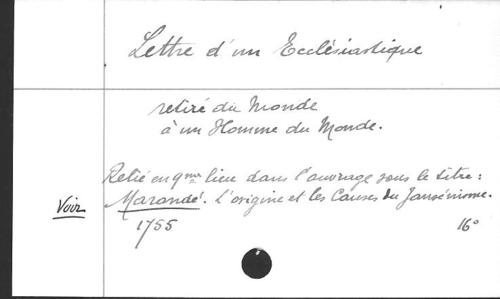 Lettre d'un Ecclésiastique
retiré du Monde
à un Homme du Monde.
Relié en 9me lieu dans l'ouvrage sous le titre :
Voir Marandé. L'origine et les Causes du Jansénisme.
1755 16°